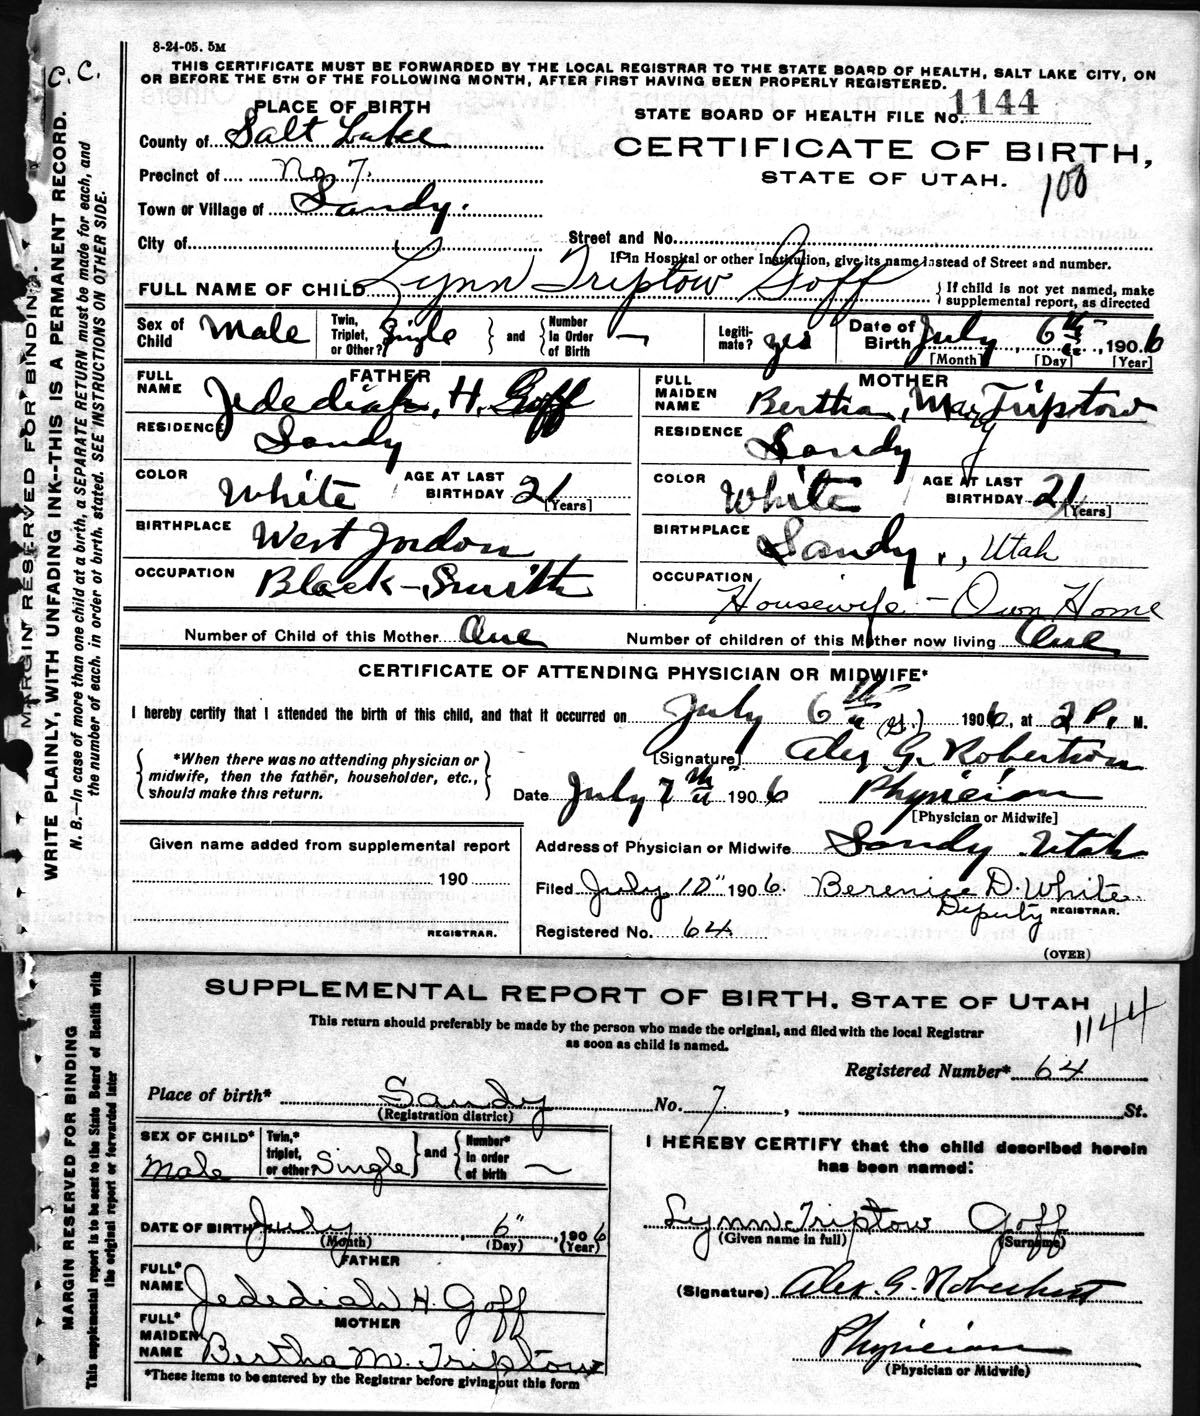 8-24-05. 5M
C. C.
THIS CERTIFICATE MUST BE FORWARDED BY THE LOCAL REGISTRAR TO THE STATE BOARD OF HEALTH, SALT LAKE CITY, ON
OR BEFORE THE 5TH OF THE FOLLOWING MONTH, AFTER FIRST HAVING BEEN PROPERLY REGISTERED.
PLACE OF BIRTH
STATE BOARD OF HEALTH FILE No. 1144
County of Salt Lake
CERTIFICATE OF BIRTH,
Precinct of No 7.
STATE OF UTAH.
100
Town or Village of Sandy.
City of
Street and No.
If in Hospital or other Institution, give its name instead of Street and number.
FULL NAME OF CHILD Lynn Triptow Goff
{ If child is not yet named, make
supplemental report, as directed
Sex of Child Male
Twin, Triplet, or Other? Single } and { Number In Order of Birth —
Legiti- mate? yes
Date of Birth July 6th, 1906
[Month] [Day] [Year]
FATHER
FULL NAME Jedediah, H. Goff
RESIDENCE Sandy
COLOR White AGE AT LAST BIRTHDAY 21 [Years]
BIRTHPLACE West Jordon
OCCUPATION Black-Smith
MOTHER
FULL MAIDEN NAME Bertha, May Triptow
RESIDENCE Sandy
COLOR White AGE AT LAST BIRTHDAY 21 [Years]
BIRTHPLACE Sandy., Utah
OCCUPATION Housewife – Own Home
Number of Child of this Mother One Number of children of this Mother now living One
CERTIFICATE OF ATTENDING PHYSICIAN OR MIDWIFE*
I hereby certify that I attended the birth of this child, and that it occurred on July 6th 1906, at 2 P. M.
*When there was no attending physician or
midwife, then the father, householder, etc.,
should make this return.
[Signature] Alex G. Robertson
Date July 7th 1906 Physician
[Physician or Midwife]
Given name added from supplemental report
190
REGISTRAR.
Address of Physician or Midwife Sandy Utah
Filed July 10" 1906. Berenice D. White
Deputy REGISTRAR.
Registered No. 64.
(OVER)
MARGIN RESERVED FOR BINDING.
WRITE PLAINLY, WITH UNFADING INK—THIS IS A PERMANENT RECORD.
N. B.—In case of more than one child at a birth, a SEPARATE RETURN must be made for each, and
the number of each, in order of birth, stated. SEE INSTRUCTIONS ON OTHER SIDE.
SUPPLEMENTAL REPORT OF BIRTH, STATE OF UTAH
1144
This return should preferably be made by the person who made the original, and filed with the local Registrar
as soon as child is named.
Registered Number* 64
Place of birth* Sandy No. 7, St.
(Registration district)
SEX OF CHILD* Male
Twin,* triplet, or other? Single } and { Number* in order of birth —
DATE OF BIRTH* July 6" 1906
(Month) (Day) (Year)
FATHER
FULL* NAME Jedediah H. Goff
MOTHER
FULL* MAIDEN NAME Bertha M. Triptow
*These items to be entered by the Registrar before giving out this form
I HEREBY CERTIFY that the child described herein
has been named:
Lynn Triptow Goff
(Given name in full) (Surname)
(Signature) Alex. G. Robertson
Physician
(Physician or Midwife)
MARGIN RESERVED FOR BINDING
This supplemental report is to be sent to the State Board of Health with
the original report or forwarded later